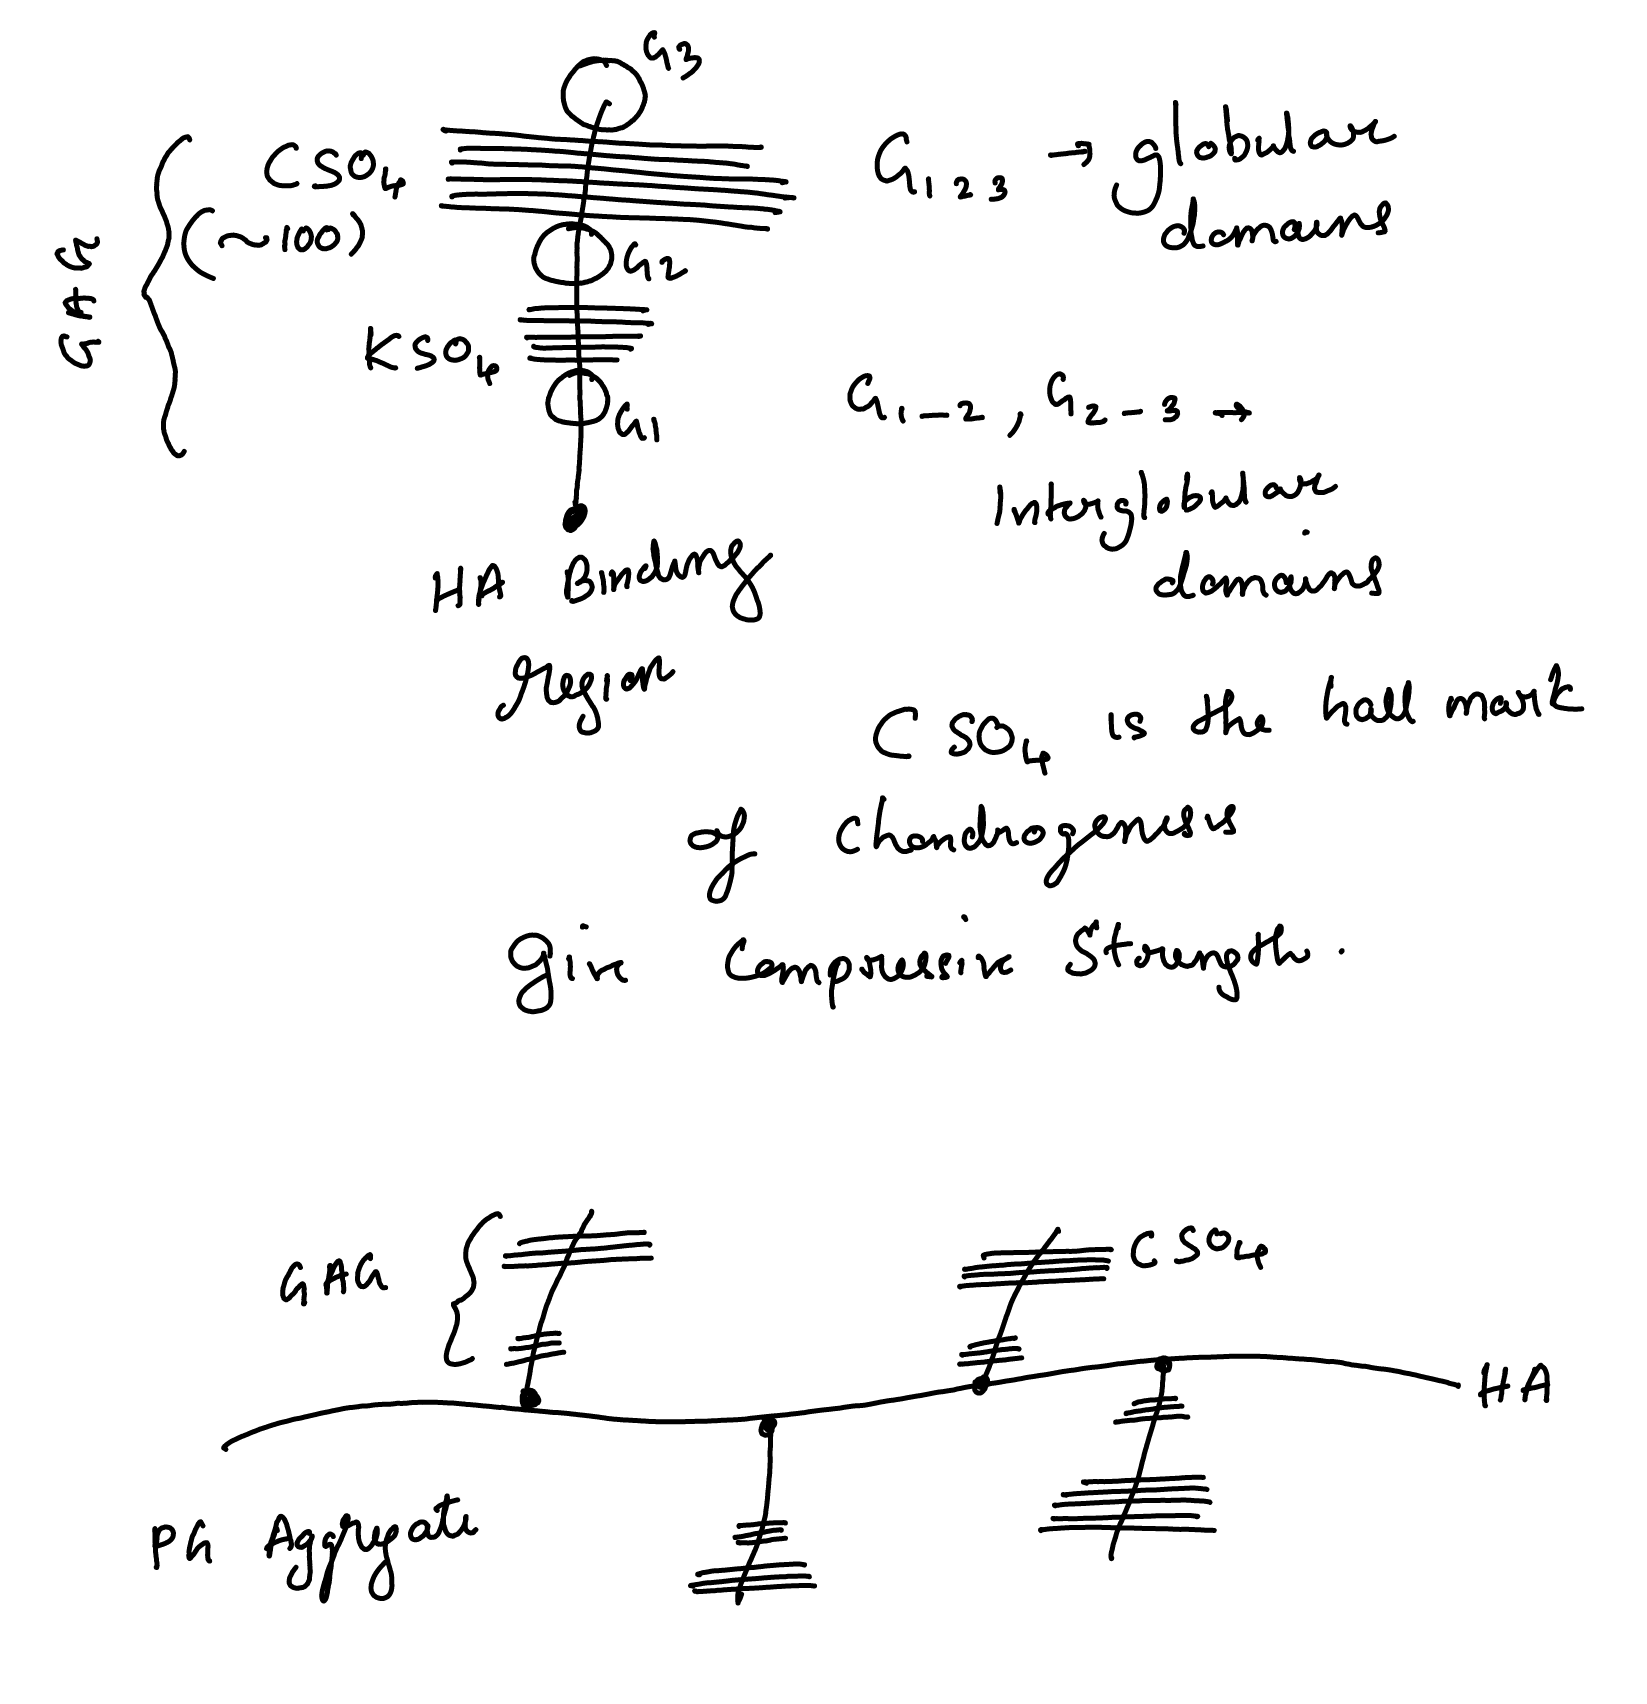 G3
CSO₄
(~100)
GAG
G2
KSO₄
G1
HA Binding
region
G₁ ₂ ₃ → globular
domains
G₁₋₂, G₂₋₃ →
Interglobular
domains
CSO₄ is the hall mark
of chondrogenesis
Give Compressive Strength.
GAG
CSO₄
HA
PG Aggregate